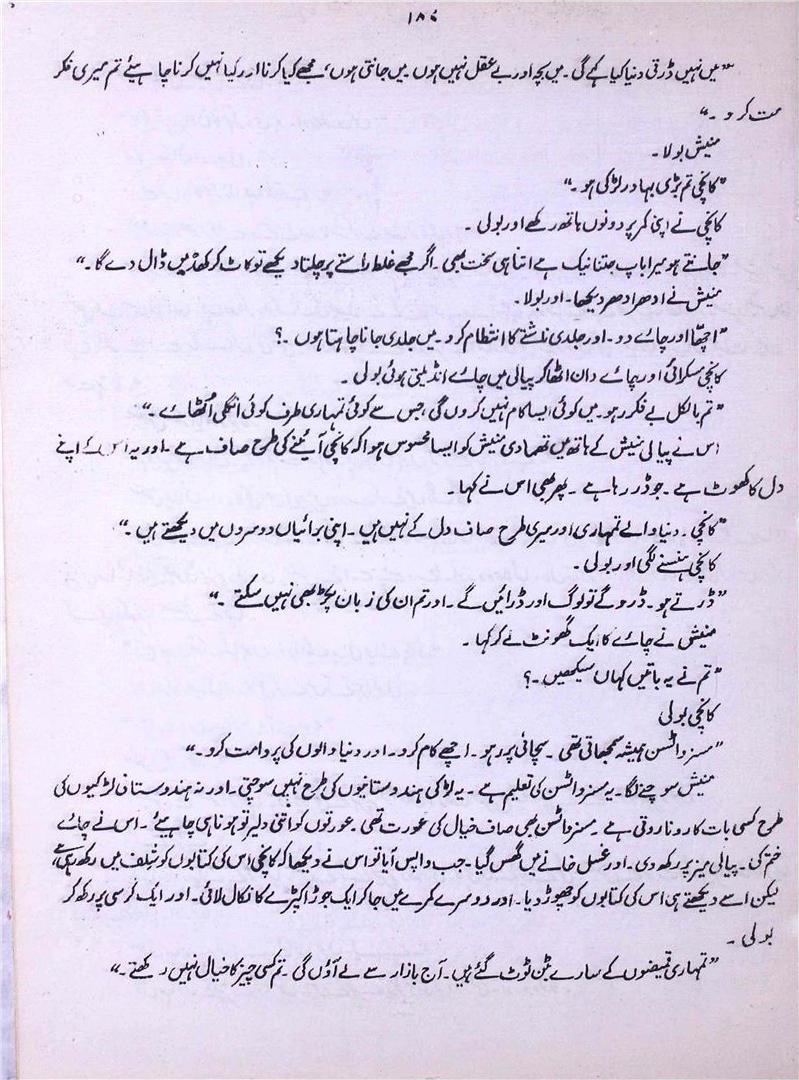 ۱۸۶
”میں نہیں ڈرتی دنیا کیا کہے گی۔ میں بچہ اور بے عقل نہیں ہوں میں جانتی ہوں، مجھے کیا کرنا اور کیا نہیں کرنا چاہیئے تم میری فکر
مت کرو۔“
منیش بولا۔
”کانچی تم بڑی بہادر لڑکی ہو۔“
کانچی نے اپنی کمر پر دونوں ہاتھ رکھے اور بولی۔
”جانتے ہو میرا باپ جتنا نیک ہے اتنا ہی سخت بھی۔ اگر مجھے غلط راستے پر چلتا دیکھے تو کاٹ کر کھڈ میں ڈال دے گا۔“
منیش نے ادھر ادھر دیکھا۔ اور بولا۔
”اچھّا اور چائے دو۔ اور جلدی ناشتے کا انتظام کرو۔ میں جلدی جانا چاہتا ہوں۔؟
کانچی مسکرائی اور چائے دان اٹھا کر پیالی میں چائے انڈیلتی ہوئی بولی۔
”تم بالکل بے فکر رہو۔ میں کوئی ایسا کام نہیں کروں گی، جس سے کوئی تمہاری طرف کوئی انگلی اُٹھائے۔“
اس نے پیالی منیش کے ہاتھ میں تھما دی منیش کو ایسا محسوس ہوا کہ کانچی آئینے کی طرح صاف ہے۔ اور یہ اس کے اپنے
دل کا کھوٹ ہے۔ جو ڈر رہا ہے۔ پھر بھی اس نے کہا۔
”کانچی۔ دنیا والے تمہاری اور میری طرح صاف دل کے نہیں ہیں۔ اپنی برائیاں دوسروں میں دیکھتے ہیں۔“
کانچی ہنسنے لگی اور بولی۔
”ڈرتے ہو۔ ڈرو گے تو لوگ اور ڈرائیں گے۔ اور تم ان کی زبان پکڑ بھی نہیں سکتے۔“
منیش نے چائے کا ایک گھونٹ لے کر کہا۔
”تم نے یہ باتیں کہاں سیکھیں۔؟
کانچی بولی
”مسز واٹسن ہمیشہ سمجھاتی تھی۔ سچائی پر رہو۔ اچھے کام کرو۔ اور دنیا والوں کی پروا مت کرو۔“
منیش سوچنے لگا۔ یہ مسز واٹسن کی تعلیم ہے۔ یہ لڑکی ہندوستانیوں کی طرح نہیں سوچتی۔ اور نہ ہندوستانی لڑکیوں کی
طرح کسی بات کا رونا روتی ہے۔ مسز واٹسن بھی صاف خیال کی عورت تھی۔ عورتوں کو اتنی دلیر تو ہونا ہی چاہیئے۔ اس نے چائے
ختم کی۔ پیالی میز پر رکھ دی۔ اور غسل خانے میں گھس گیا۔ جب واپس آیا تو اس نے دیکھا کہ کانچی اس کی کتابوں کو شلف میں رکھ رہی ہے
لیکن اسے دیکھتے ہی اس کی کتابوں کو چھوڑ دیا۔ اور دوسرے کمرے میں جا کر ایک جوڑا کپڑے کا نکال لائی۔ اور ایک کرسی پر رکھ کر
بولی۔
”تمہاری قمیضوں کے سارے بٹن ٹوٹ گئے ہیں۔ آج بازار سے لے آؤں گی۔ تم کسی چیز کا خیال نہیں رکھتے۔“